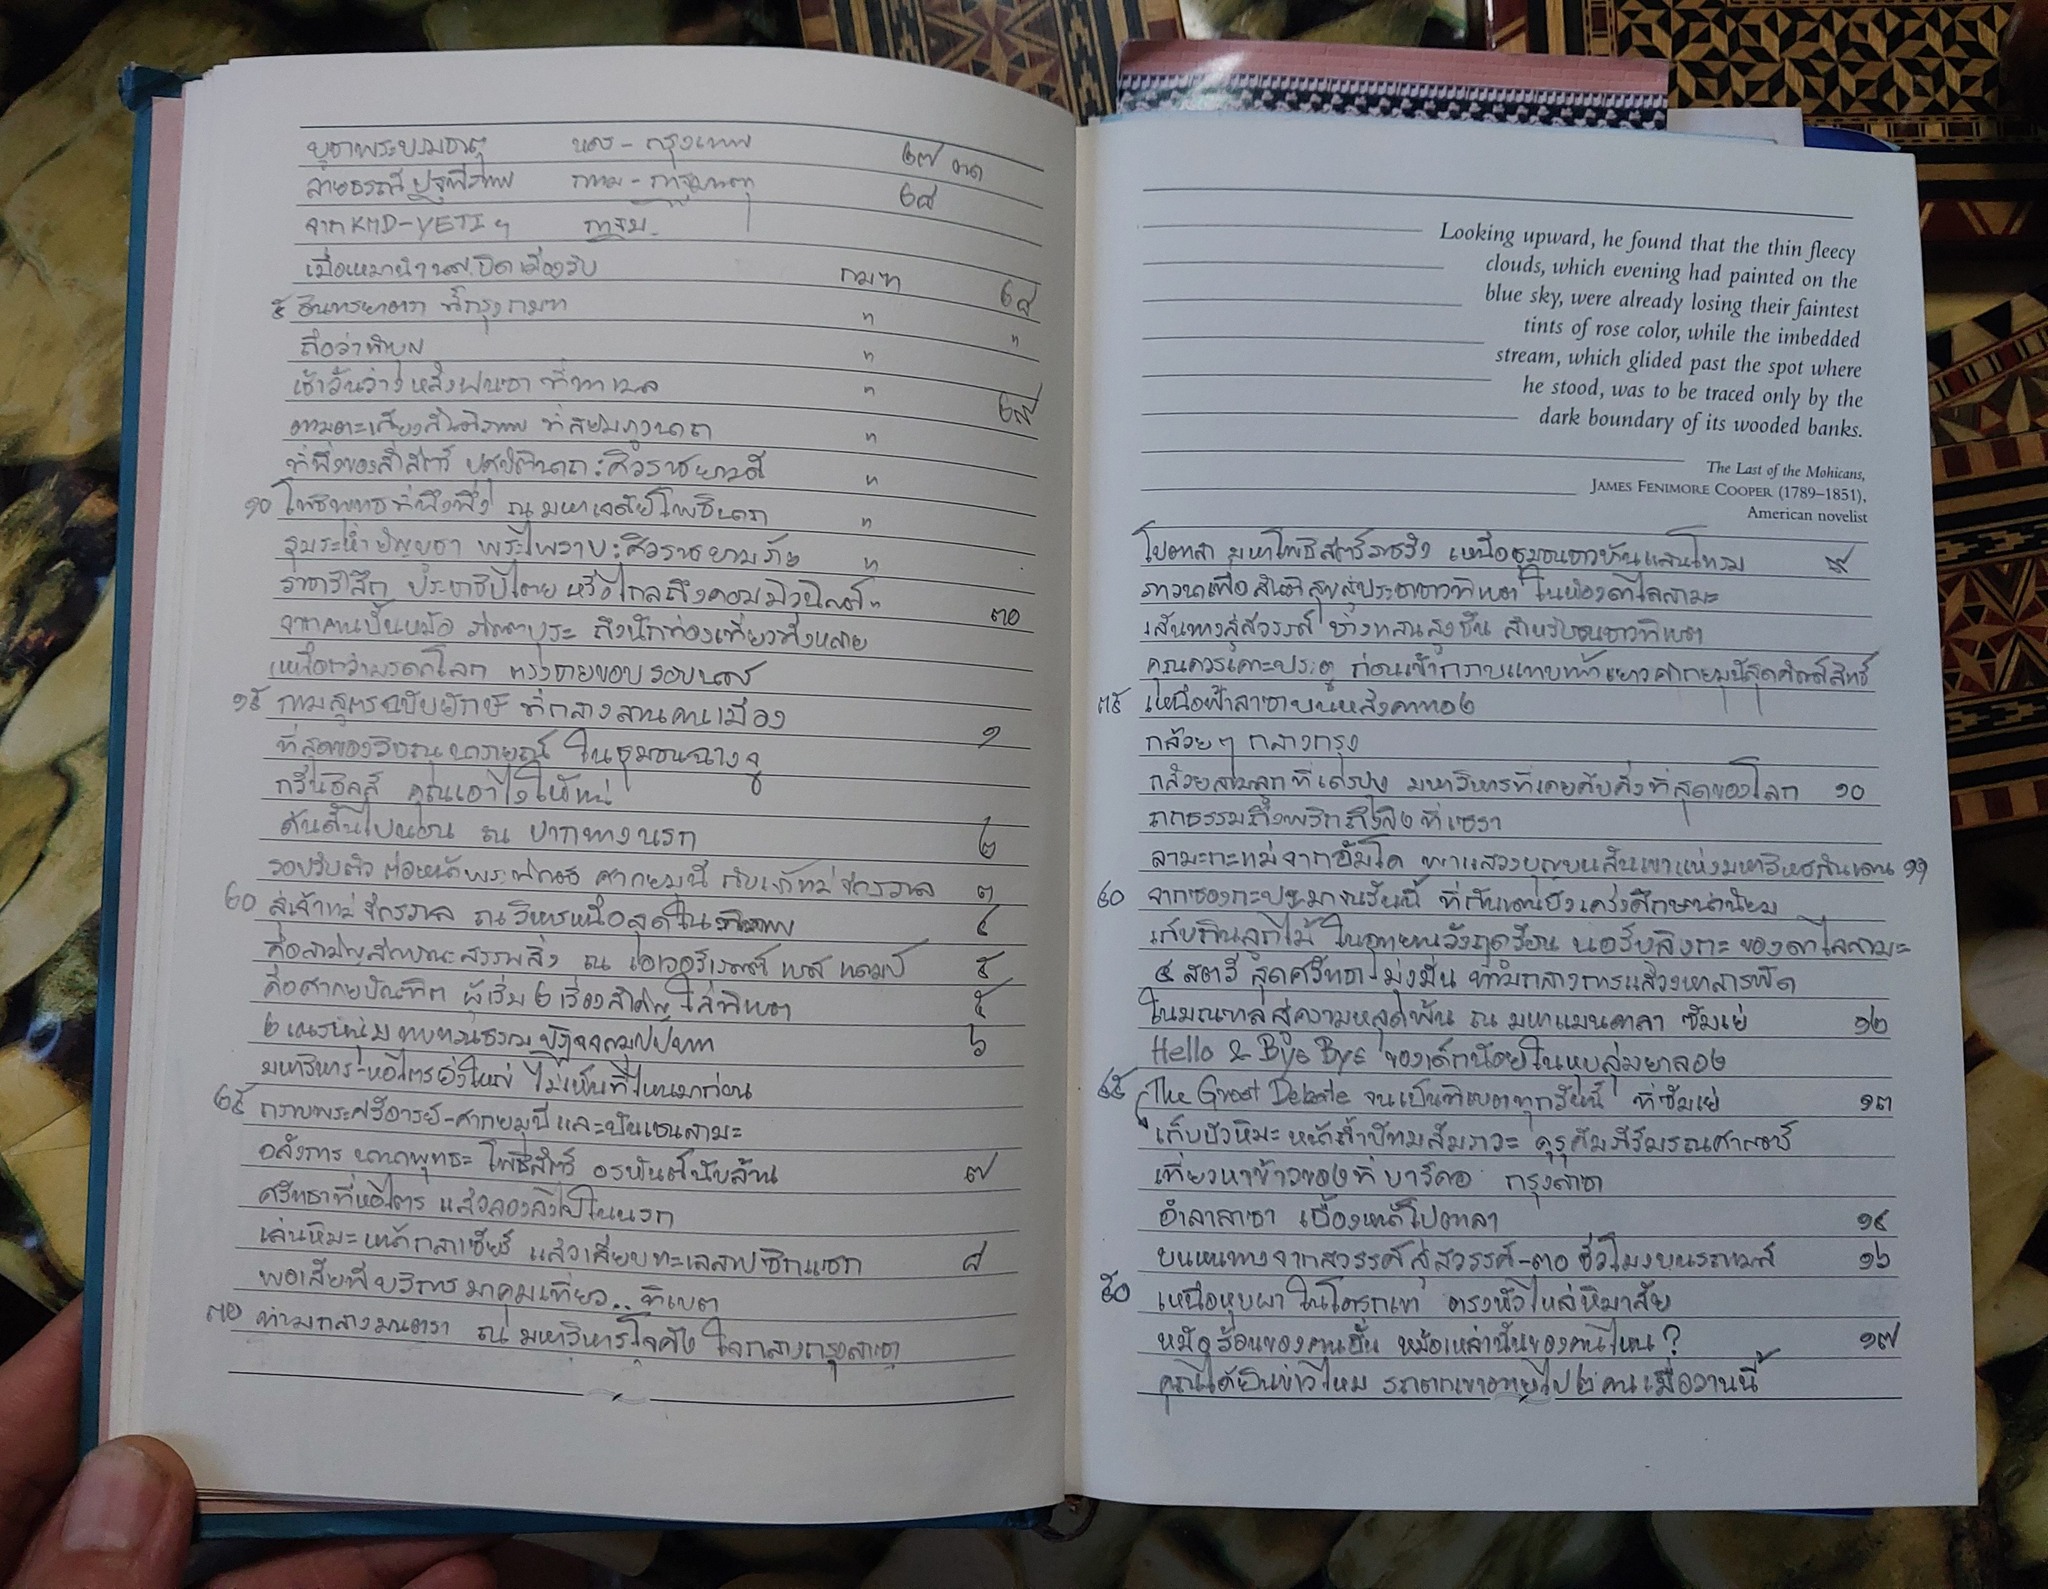 บูชาพระบรมธาตุ นคร - กรุงเทพ ๒๗ ตค
กทม - กาฐมาณฑุ ๒๘
จาก KMD-YETI ฯ กาฐม.
กมฑ ๒๘
๕ อินทรยาตรา ที่กรุงกมฑ " "
ถือว่าทำบุญ "
เช้าวันว่างหลังฝนซา ที่ทาเมล " ๒๙
ตามตะเกียงสันติภาพ ที่สยมภูวนาถ "
ที่พึ่งของสี่สัตว์ ปศุปตินาถ : ศิวราชยามดี "
๑๐ โพธิพุทธที่พึงพึ่ง ณ มหาเจดีย์โพธินาถ "
"
ราชารำลึก ประชาธิปไตย หรือไกลถึงคอมมิวนิสต์ฯ ๓๐
จากคนปั้นหม้อ ภักตาปุระ ถึงนักท่องเที่ยวทั้งหลาย
เหนือกว่ามรดกโลก ตรงชายขอบรอบนคร
๑๕ กามสูตรฉบับยักษ์ ที่กลางลานคนเมือง ๑
ที่สุดของวิษณุนารายณ์ ในชุมชนฉางงู
กรีนฮิลล์ คุณเอาไงให้แน่
ดั้นด้นไปนอน ณ ปากทางนรก ๒
๓
๒๐ สู่เจ้าแม่จักรวาล ณ วิหารเหนือสุดในทิเบต ๔
คือสามัญลักษณะสรรพสิ่ง ณ เอเวอร์เรสต์ เบส แคมป์ ๕
คือศากยบัณฑิต ผู้เริ่ม ๒ เรื่องสำคัญ ใส่ทิเบต ๕
๒ เณรหนุ่ม ทบทวนธรรม ปฏิจจสมุปปบาท ๖
มหาวิหาร-หอไตรยิ่งใหญ่ ไม่เห็นที่ไหนมาก่อน
๒๕ กราบพระศรีอารย์-ศากยมุนี และปันเชนลามะ
อลังการ นานาพุทธะ โพธิสัตว์ อรหันต์นับล้าน ๗
ศรัทธาที่หอไตร แล้วลองลงไปในนรก
เล่นหิมะ หน้ากลาเซียร์ แล้วเลียบทะเลสาบซิกแซก ๘
พอเสียทีบริการมาคุมเที่ยว.. ทิเบต
๓๐ ท่ามกลางมนตรา ณ มหาวิหารโจคัง ใจกลางกรุงลาซา
Looking upward, he found that the thin fleecy
clouds, which evening had painted on the
blue sky, were already losing their faintest
tints of rose color, while the imbedded
stream, which glided past the spot where
he stood, was to be traced only by the
dark boundary of its wooded banks.
The Last of the Mohicans,
JAMES FENIMORE COOPER (1789–1851),
American novelist
โปตาลา มหาโพธิสัตว์ราชวัง เหนือชุมชนชาวบ้านแสนโทรม ๙
ภาวนาเพื่อสันติสุขสู่ประชาชาวทิเบต ในห้องดาไลลามะ
เส้นทางสู่สวรรค์ ช่างแสนสูงชัน สำหรับชนชาวทิเบต
คุณควรเคาะประตู ก่อนเข้ากราบแทบเท้าเยาวศากยมุนีสุดศักดิ์สิทธิ์
๓๕ เหนือฟ้าลาซาบนหลังคาทอง
กล้วยๆ กลางกรุง
กล้วยสามลูกที่เดรปุง มหาวิหารที่เคยคับคั่งที่สุดของโลก ๑๐
ถกธรรมถึงพริกถึงขิง ที่เซรา
ลามะกะแม่จากอัมโด พาแสวงบุญบนสันเขาแห่งมหาวิหารกันเดน ๑๑
๔๐ จากซองกะปะมาจนวันนี้ ที่กันเดนยังเคร่งศึกษาน่านิยม
เก็บกินลูกไม้ ในอุทยานวังฤดูร้อน นอร์บุลิงกะ ของดาไลลามะ
๔ สตรี สุดศรัทธา-มุ่งมั่น ท่ามกลางการแสวงหาสารพัด
ในมณฑลสู่ความหลุดพ้น ณ มหาแมนดาลา ซัมเย่ ๑๒
Hello & Bye Bye ของเด็กน้อยในหุบลุ่มยาลอง
๔๕ The Great Debate จนเป็นทิเบตทุกวันนี้ ที่ซัมเย่ ๑๓
เก็บบัวหิมะ หน้าถ้ำปัทมสัมภวะ คุรุคัมภีร์มรณศาสตร์
เที่ยวหาข้าวของที่ บาร์คอ กรุงลาซา
อำลาลาซา เบื้องหน้าโปตาลา ๑๔
บนหนทางจากสวรรค์สู่สวรรค์-๓๐ ชั่วโมงบนรถเมล์ ๑๖
๕๐ เหนือหุบผา ในโตรกเขา ตรงหัวไหล่หิมาลัย
หม้อร้อนของคนอื่น หม้อเหล่านั้นของคนไหน? ๑๗
คุณได้ยินข่าวไหม รถตกเขาตายไป ๒ คนเมื่อวานนี้